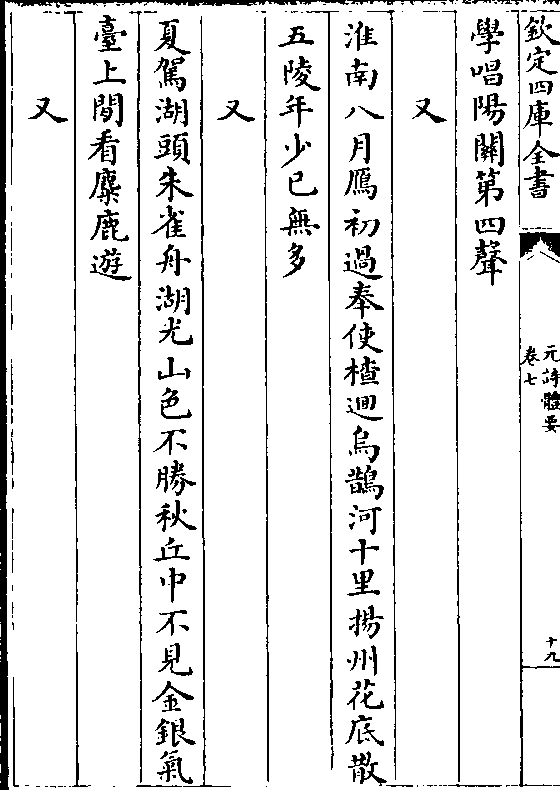 欽定四庫全書
元詩體要
卷七
十九
學唱陽關第四聲
又
淮南八月鴈初過奉使槎迴烏鵲河十里揚州花底散
五陵年少已無多
又
夏駕湖頭朱雀舟湖光山色不勝秋丘中不見金銀氣
臺上閒看麋鹿遊
又